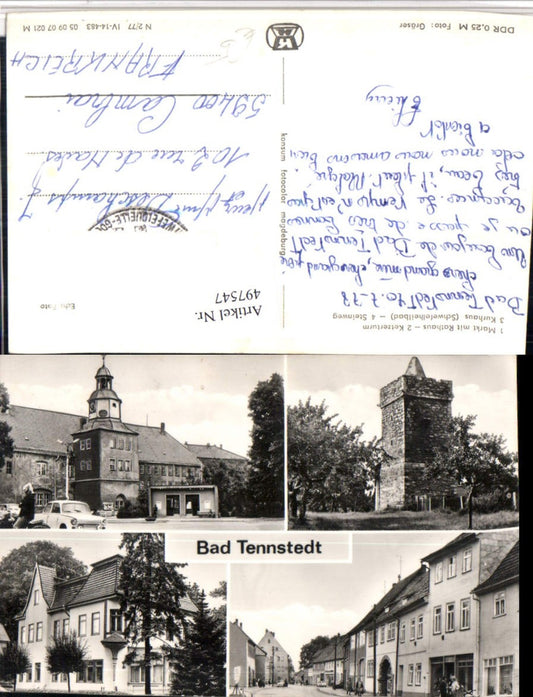 1 Markt mit Rathaus – 2 Ketzerturm
3 Kurhaus (Schwefelheilbad) – 4 Steinweg
Bad Tennstedt 10.7.78
chers grand mère, chers grand père
Un bonjour de Bad Tennstedt
où je passe de très bonnes
vacances. Le temps n'est pas
très beau, il pleut. Malgré
cela nous nous amusons bien
a bientôt
Thierry
Echt Foto
Artikel Nr.
497547
DDR 0,25 M Foto: Gräser
konsum fotocolor magdeburg
N 2/77 IV-14-483 05 09 07 021 M
Deschamps J.
102 rue de
59400 Cambrai
FRANKREICH
Bad Tennstedt